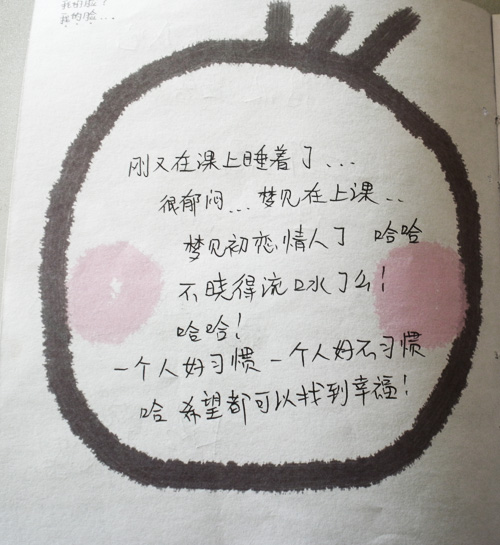 我的脸？
我的脸...
刚又在课上睡着了...
很郁闷...梦见在上课..
梦见初恋情人了 哈哈
不晓得流口水了么！
哈哈！
一个人好习惯 一个人好不习惯
哈 希望都可以找到幸福！